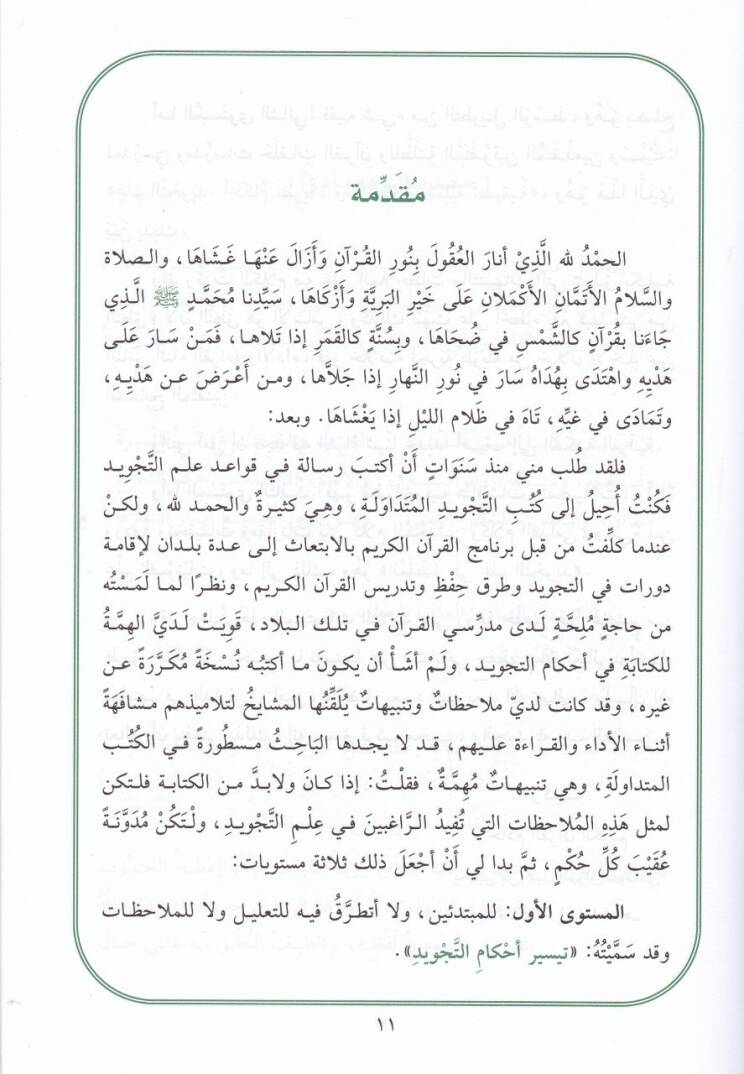 مُقَدِّمة
الحمْدُ لله الَّذِيْ أنارَ العُقُولَ بِنُورِ القُرْآنِ وَأَزَالَ عَنْهَا غَشَاهَا، والصلاة
والسَّلامُ الأَتَمَّانِ الأَكْمَلانِ عَلَى خَيْرِ البَرِيَّةِ وَأَزْكَاهَا، سَيِّدِنا مُحَمَّدٍ ﷺ الَّذِي
جَاءَنا بِقُرْآنٍ كالشَّمْسِ في ضُحَاهَا، وبِسُنَّةٍ كالقَمَرِ إذا تَلاهَا، فَمَنْ سَارَ عَلَى
هَدْيِهِ واهْتَدَى بِهُدَاهُ سَارَ في نُورِ النَّهارِ إذا جَلاَّها، ومن أعْرَضَ عن هَدْيِهِ،
وتَمَادَى في غيِّهِ، تَاهَ في ظَلام الليْلِ إذا يَغْشَاهَا. وبعد:
فلقد طُلب مني منذ سَنَوَاتٍ أَنْ أكتبَ رسالة في قواعد علم التَّجْويد
فَكُنْتُ أُحِيلُ إلى كُتُبِ التَّجْوِيدِ المُتَدَاوَلَةِ، وهِيَ كثيرةٌ والحمد لله، ولكنْ
عندما كلِّفتُ من قبل برنامج القرآن الكريم بالابتعاث إلى عدة بلدان لإقامة
دورات في التجويد وطرق حِفْظِ وتدريس القرآن الكريم، ونظرًا لما لَمَسْتُه
من حاجةٍ مُلِحَّةٍ لَدى مدرّسي القرآن في تلك البلاد، قَوِيَتْ لَدَيَّ الهِمَّةُ
للكتابَةِ في أحكام التجويد، ولَمْ أشَأْ أن يكون ما أكتبُه نُسْخَةً مُكَرَّرَةً عن
غيره، وقد كانت لديّ ملاحظاتٌ وتنبيهاتٌ يُلَقِّنُها المشايخُ لتلاميذهم مشافَهَةً
أثناء الأداء والقراءة عليهم، قد لا يجدها البَاحِثُ مسطُورةً في الكُتُبِ
المتداولَةِ، وهي تنبيهاتٌ مُهِمَّةٌ، فقلْتُ: إذا كانَ ولابدَّ من الكتابة فلتكن
لمثل هَذِهِ المُلاحظات التي تُفِيدُ الرَّاغبين في عِلْمِ التَّجْويدِ، ولْتَكُنْ مُدَوَّنَةً
عُقَيْبَ كُلِّ حُكْمٍ، ثمَّ بدا لي أَنْ أجْعَلَ ذلك ثلاثة مستويات:
المستوى الأول: للمبتدئين، ولا أتطرَّقُ فيه للتعليل ولا للملاحظات
وقد سَمَّيْتُهُ: «تيسير أحْكامِ التَّجْويدِ».
١١